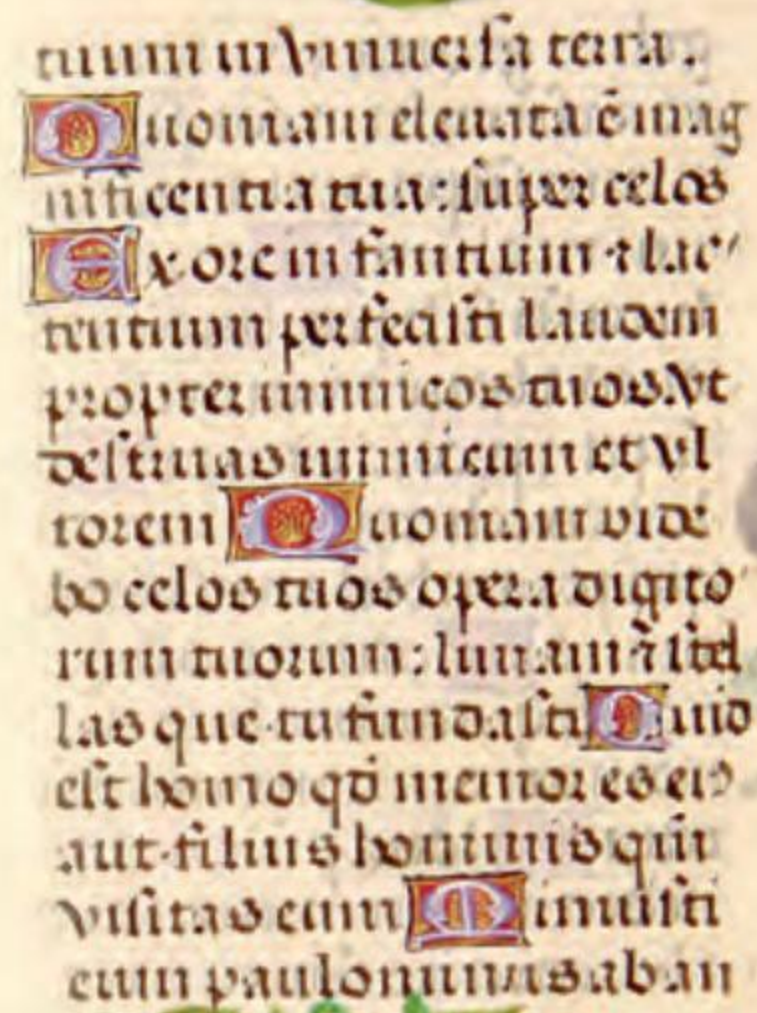 tuum in vniuersa terra.
Quoniam eleuata ē mag
nificentia tua: super celos
Ex ore infantium ⁊ lac
tentium perfecisti laudem
propter inimicos tuos. vt
destruas inimicum et vl
torem Quoniam vide
bo celos tuos opera digito
rum tuorum: lunam ⁊ stel
las que tu fundasti Quid
est homo qđ memor es eiꝰ
aut filius hominis qm̄
visitas eum Minuisti
eum paulominus ab an